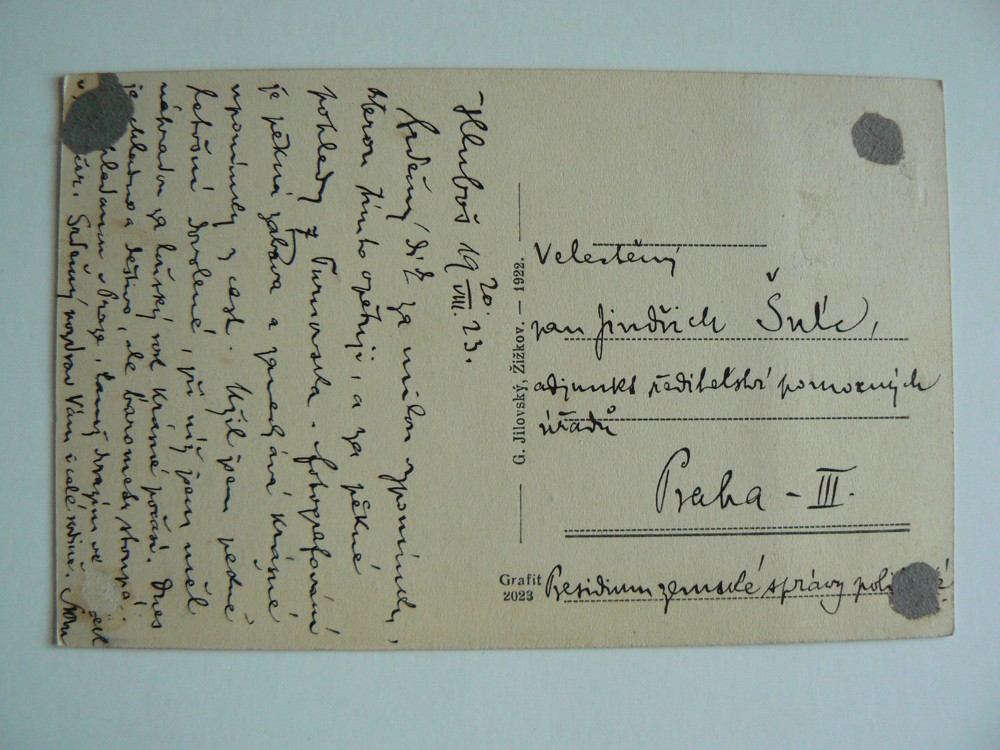 Hluboš 19 20./VIII. 23.
Srdečný dík za milou vzpomínku,
kterou tímto opětuji, a za pěkné
pohledy z Turnovska. Fotografování
je pěkná zábava a zanechává krásné
upomínky z cest. Užil jsem pěkně
letošní dovolené, při níž jsem měl
náhradou za loňský rok krásné počasí. Dnes
je chladno a deštivo, ale barometr stoupá.
v Praze,
Srdečný pozdrav Vám i celé rodině.
G. Jilovský, Žižkov. — 1922.
Velectěný
pan Jindřich Šulc,
adjunkt ředitelství pomocných
úřadů
Praha - III.
Grafit
2023
Presidium zemské správy